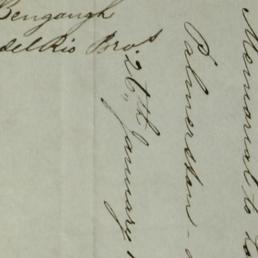 Bengough
del Rio Bros
Memorial to
Palmerston -
26th January